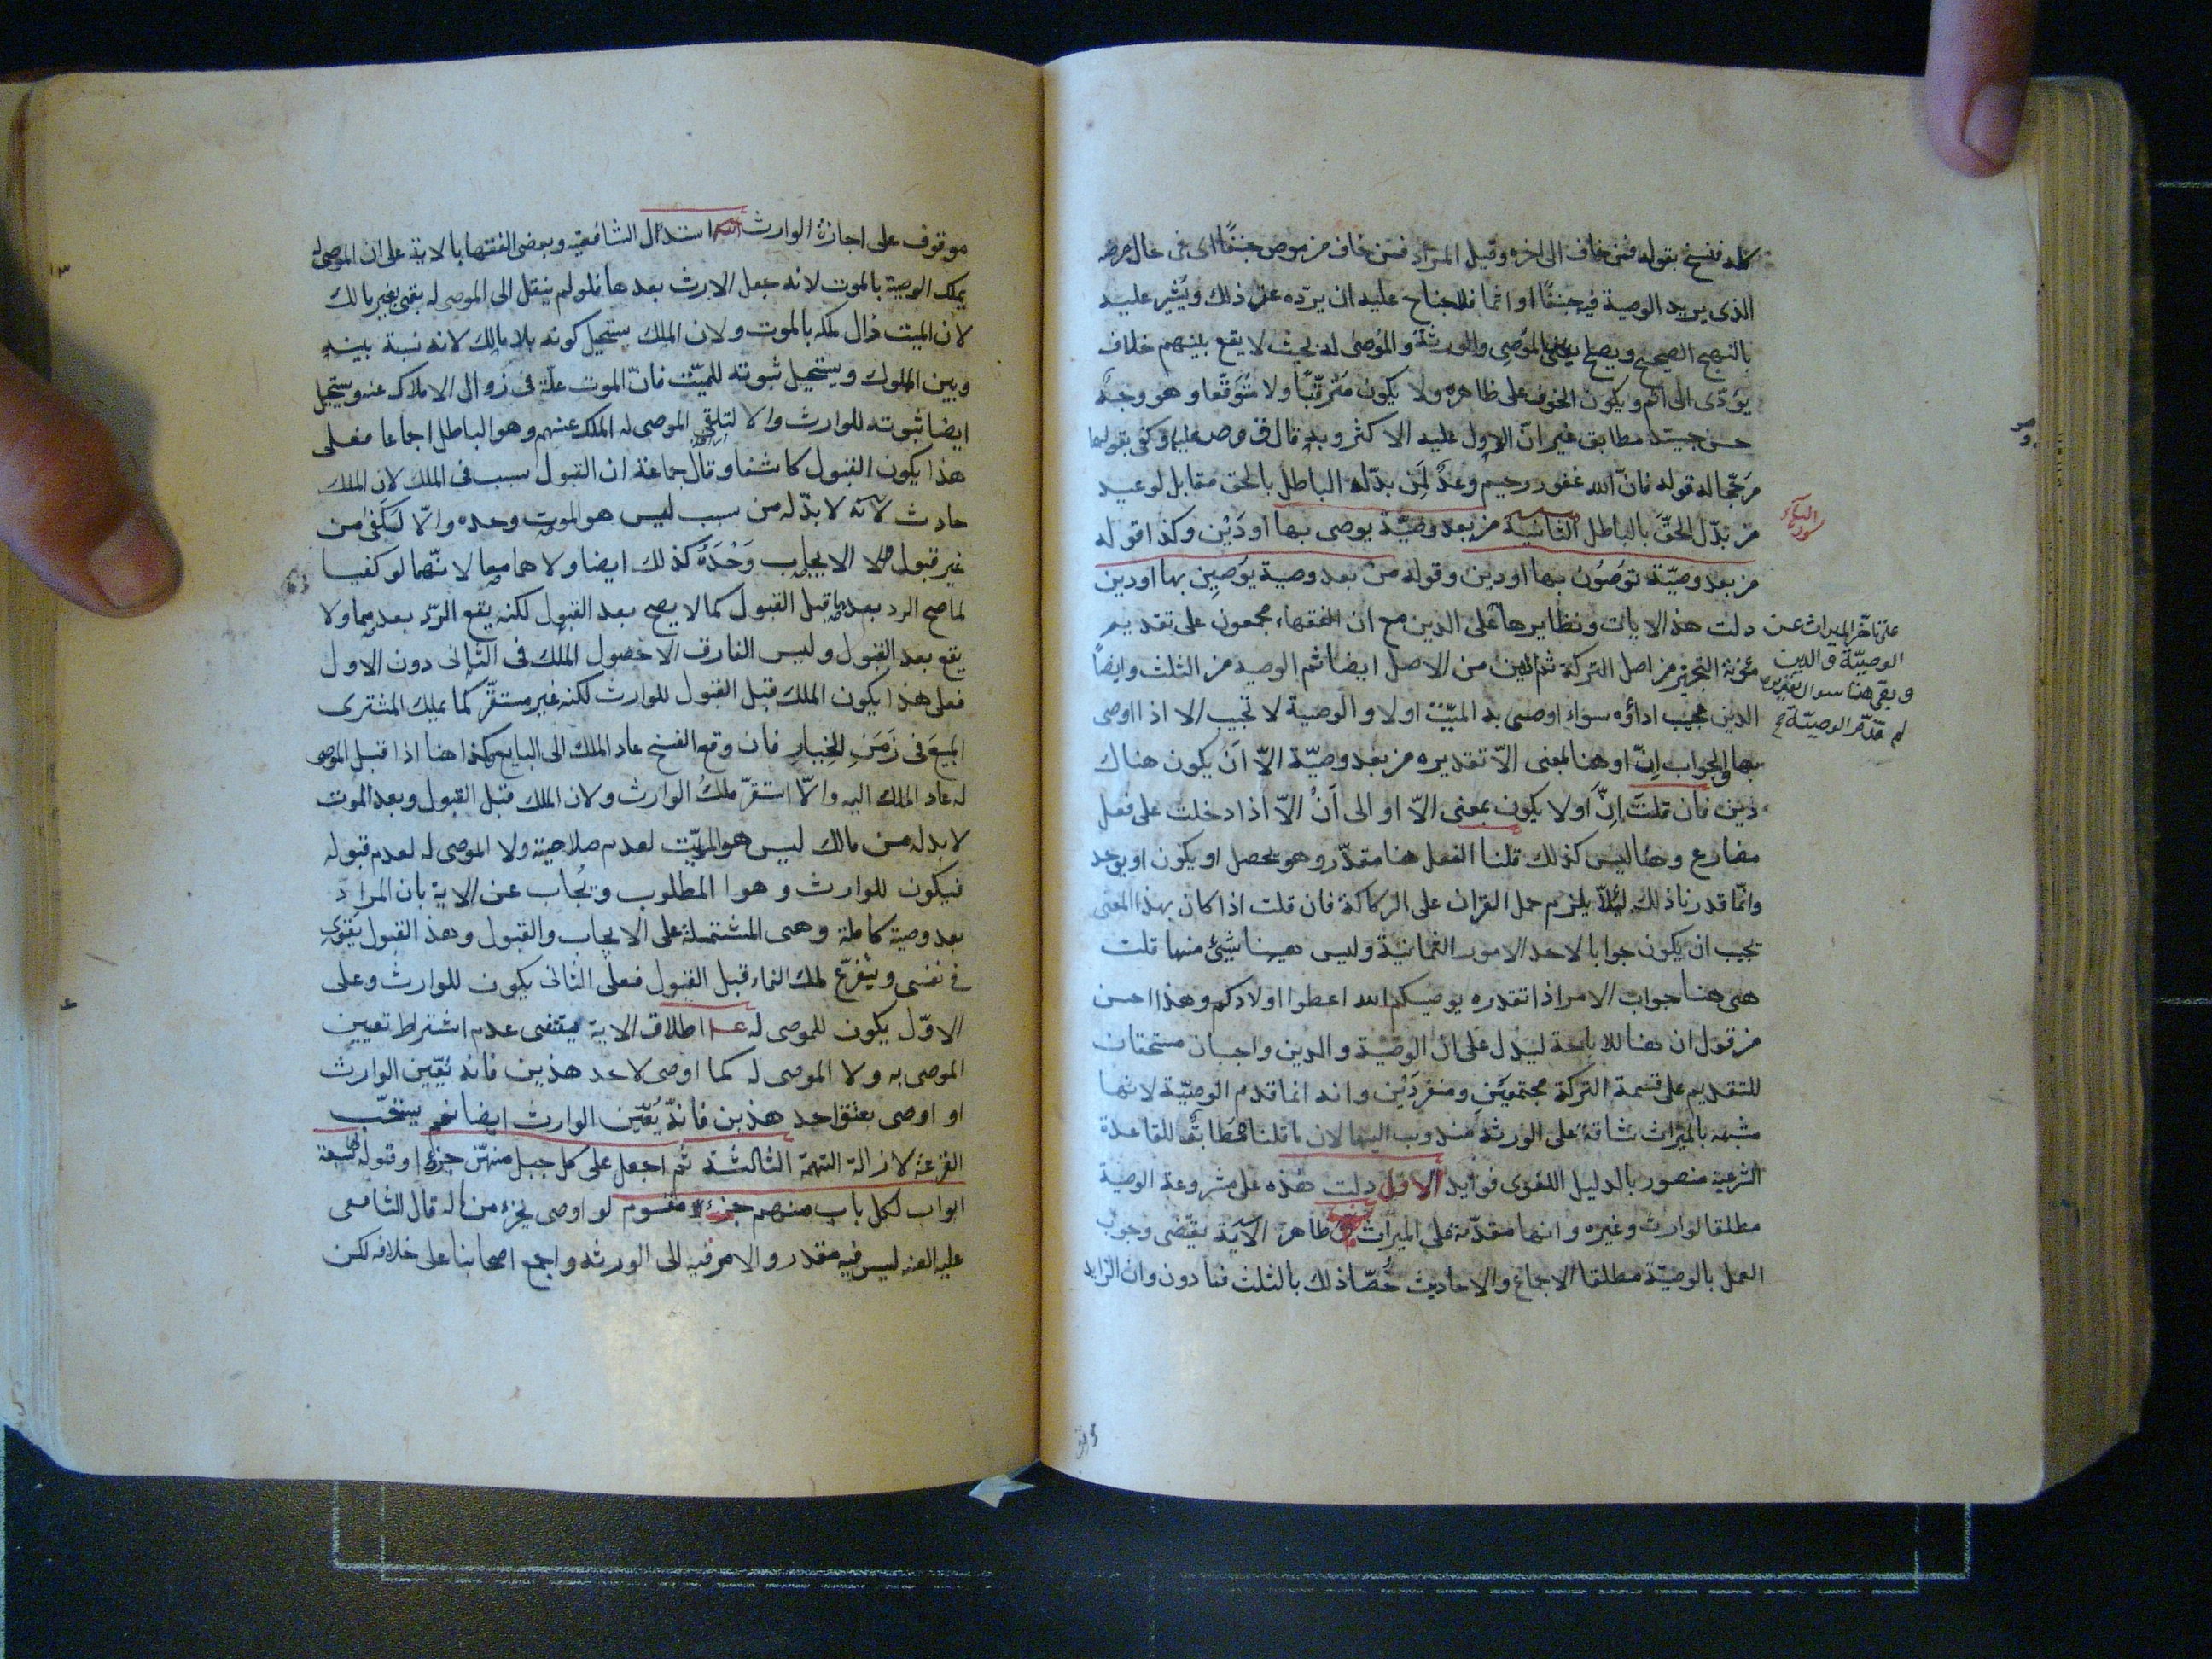 كله فنسخ بقوله فمن خاف الى اخره وقيل المراد فمن خاف من موص جنفًا اى فى حال مرضه
الذى يريد الوصية فيه جنفًا او اثما فلا جناح عليه ان يردّه عن ذلك ويُشِير عليه
بالنهج الصحيح ويصلح بين الموُصِى والورثة والمُوصى له بحيث لا يقع بينهم خلاف
يؤدّى الى اثم ويكون الخوف على ظاهره ولا يكون مُترقّبًا ولا مُتَوقَّعا وهو وجهٌ
حسن جيّد مطابق غير انّ الاول عليه الاكثر وبه قال ق وص عليهما وكفى بقولهما
مرَجّحا له قوله فانّ الله غفور رحيم وعدٌ لِمَنْ بدّله الباطل بالحق مقابل لوعيد
من بدّل الحقَّ بالباطل الثانية من بعد وصيّة يوصى بها او دَيْن وكذا قوله
النساء
سورة
من بعد وصيّة توصَوُن بها او دين وقوله من بعد وصية يوصِين بها او دين
دلت هذ الايات ونظايرها على الدين مع ان الفقهاء مجمعون على تقديم
على تاخّر الميراث عن
الوصيّة والدين
وبقى هنا سوال تقديره
لم قدّم الوصيّة
مئونة التجهيز من اصل التركة ثم الدين من الاصل ايضا ثم الوصيه من الثلث وايضاً
الدين يجب اداؤه سواء اوصى به الميّت اولا والوصية لا تجب الا اذا اوصى
بها والجواب انّ او هنا بمعنى الاّ تقديره من بعد وصيّة الاّ اَن يكون هناك
دين فان قلتَ اِنّ اَو لا يكون بمعنى الاّ او الى اَنْ الاّ اذا دخلت على فعل
مضارع وهنا ليس كذلك قلنا الفعل هنا مقدّر وهو يحصل او يكون او يوجد
وانّما قدرنا ذلك لئلاّ يلزم حمل القران على الركاكة فان قلت اذا كان بهذا المعنى
يجب ان يكون جوابا لاحد الامور الثمانية وليس هيهنا شئ منها قلت
هى هنا جواب الامر اذا تقدره يوصيكم الله اعطوا اولادكم وهذا احسن
من قول ان هنا للاباحة ليدل على ان الوصيّة والدين واجبان مستحقان
للتقديم على قسمة التركة مجتمعَينِ ومنفردَيْن وانه انما قدم الوصيّة لانها
مشبهه بالميراث شاقة على الورثه مندوب اليها لان ما قلناه مطابقٌ للقاعدة
الشرعية منصور بالدليل اللغوى فوايد الاول دلت هذه على مشروعة الوصية
مطلقا لوارث وغيره وانها مقدّمة على الميراث ظاهر الآية يقتضى وجوب
العمل بالوصيّة مطلقا الاجماع والاحاديث خُصّا ذلك بالثلث فما دون وان الزايد
موقوف على اجازة الوارث استدال الشافعيه وبعض الفقها بالاية على ان الموصى له
يملك الوصية بالموت لانه جعل الارث بعدها فلو لم ينتقل الى الموصى له بقى بغير مالك
لان الميت زال ملكه بالموت ولان الملك يستحيل كونه بلا مالك لانه نسبة بينه
وبين المملوك ويستحيل ثبوته للميّت فانّ الموت علّة فى زوال الاملاك عنه ويستحيل
ايضا ثبوته للوارث والا لتلقى الموصى له الملك عنهم وهو الباطل اجاعا فعلى
هذا يكون القبول كاشفا وقال جماعة ان القبول سبب فى الملك لان الملك
حادث لانّه لا بدّ له من سبب ليس هو الموت وحده والّا لكفى من
غير قبول ولا الايجاب وَحْدَهُ كذلك ايضا ولا هما معا لانّهما لو كفيا
لما صح الرد بعدهما قبل القبول كما لا يصح بعد القبول لكنه يقع الردّ بعدهما ولا
يقع بعد القبول وليس الفارق الا حصول الملك فى الثانى دون الاول
فعلى هذا يكون الملك قبل القبول للوارث لكنه غير مستقرّ كما يملك المشترى
المبيعَ فى زَمَنِ الخِيارِ فان وقع الفسخ عاد الملك الى البايع وكذا هنا اذا قبل الموصى
له عاد الملك اليه والّا استقرّ ملكُ الوارث ولان الملك قبل القبول وبعد الموت
لا بد له من مالك ليس هو الميّت لعدم صلاحيته ولا الموصى له لعدم قبوله
فيكون للوارث وهوا المطلوب ويُجاب عن الاية بان المراد
بعد وصية كاملة وهى المشتملة على الايجاب والقبول وهذ القبول يَقوى
فى نفسى ويتفرّع ملك النماء قبل القبول فعلى الثانى يكون للوارث وعلى
الاوّل يكون للموصى له اطلاق الاية يقتضى عدم اشتراط تعيين
الموصى به ولا الموصى له كما اوصى لاحد هذين فانه يُعيّن الوارث
او اوصى بعتق احد هذين فانه يُعيّن الوارث ايضا نعم يستحبّ
القرعة لازالة التهمة الثالثة ثم اجعل على كل جبل منهنّ جزءا وقوله لها سبعة
ابواب لكل باب منهم جزء مقسوم لو اوصى بجزء من ماله قال الشافعى
عليه ليس فيه مقدر والامر فيه الى الورثه واجمع اصحابنا على خلافه لكن